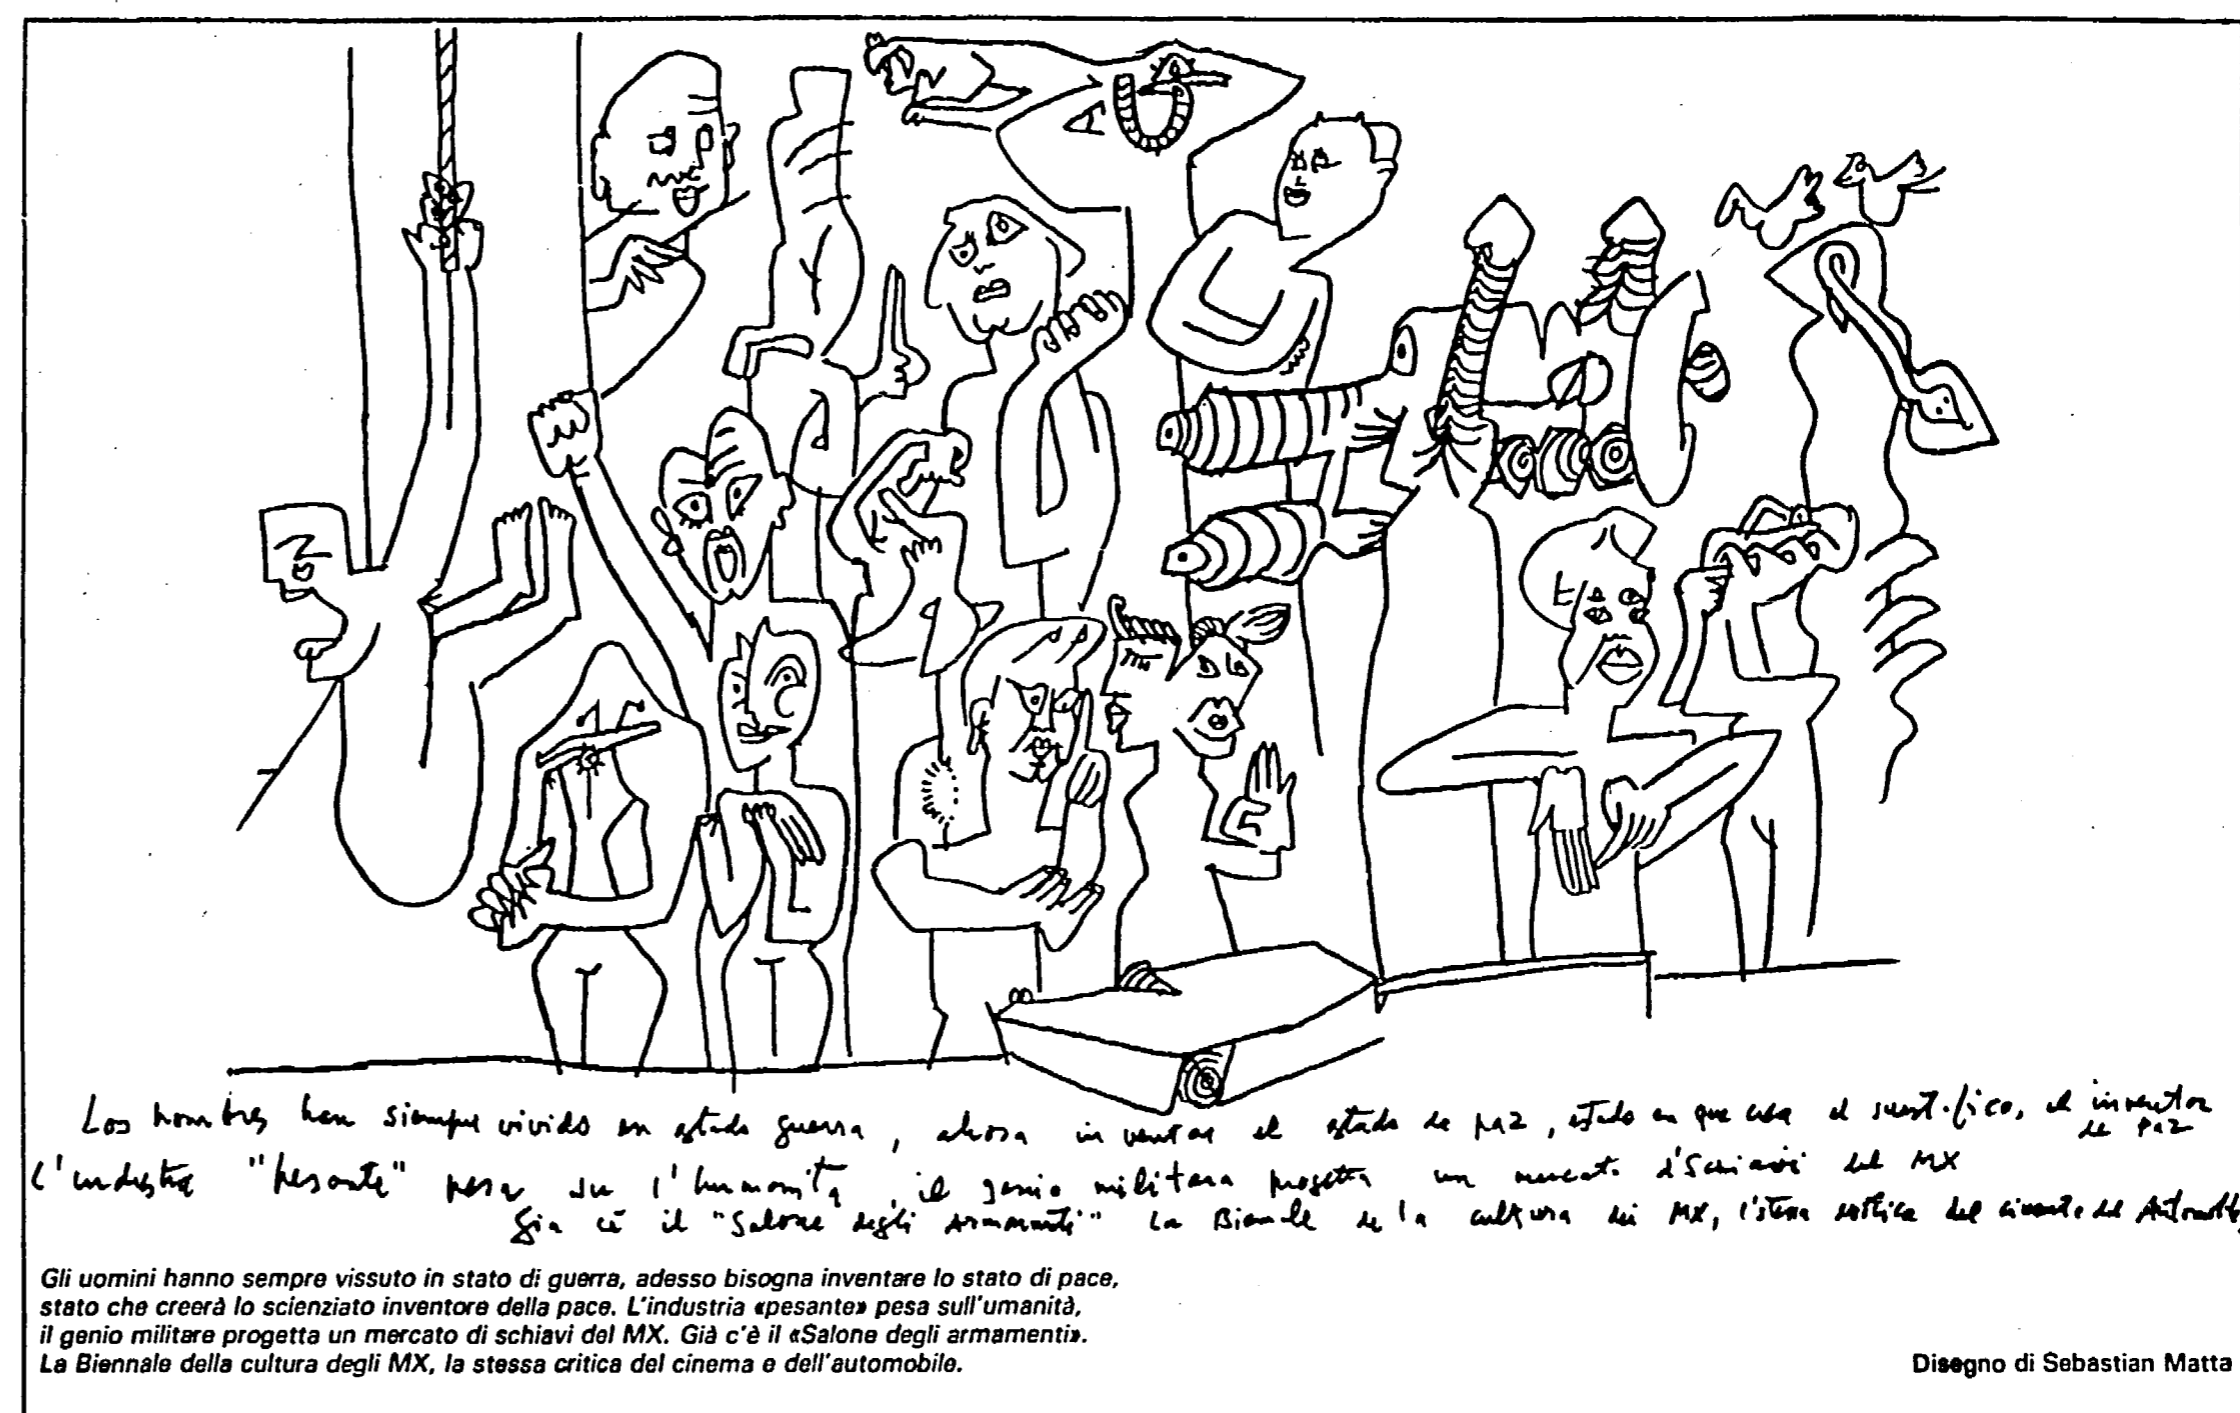 Los hombres han siempre vivido en estado guerra, ahora inventar el estado de paz, estado en que crea el scientifico, el inventor
de paz
L'industria "pesante" pesa su l'humanità, il genio militare progetta un mercato di schiavi del MX
Già c'è il "Salone degli Armamenti" La Biennale de la cultura dei MX, l'stessa critica del del Automobile
Gli uomini hanno sempre vissuto in stato di guerra, adesso bisogna inventare lo stato di pace,
stato che creerà lo scienziato inventore della pace. L'industria «pesante» pesa sull'umanità,
il genio militare progetta un mercato di schiavi del MX. Già c'è il «Salone degli armamenti».
La Biennale della cultura degli MX, la stessa critica del cinema e dell'automobile.
Disegno di Sebastian Matta